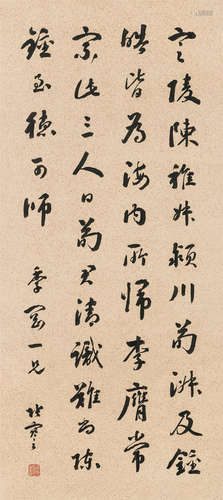 定陵陳稚叔潁川荀淑及鍾
皓皆為海内所歸李膺常
宗此三人曰荀君清識難尚陳
鍾至德可師
季 一兄